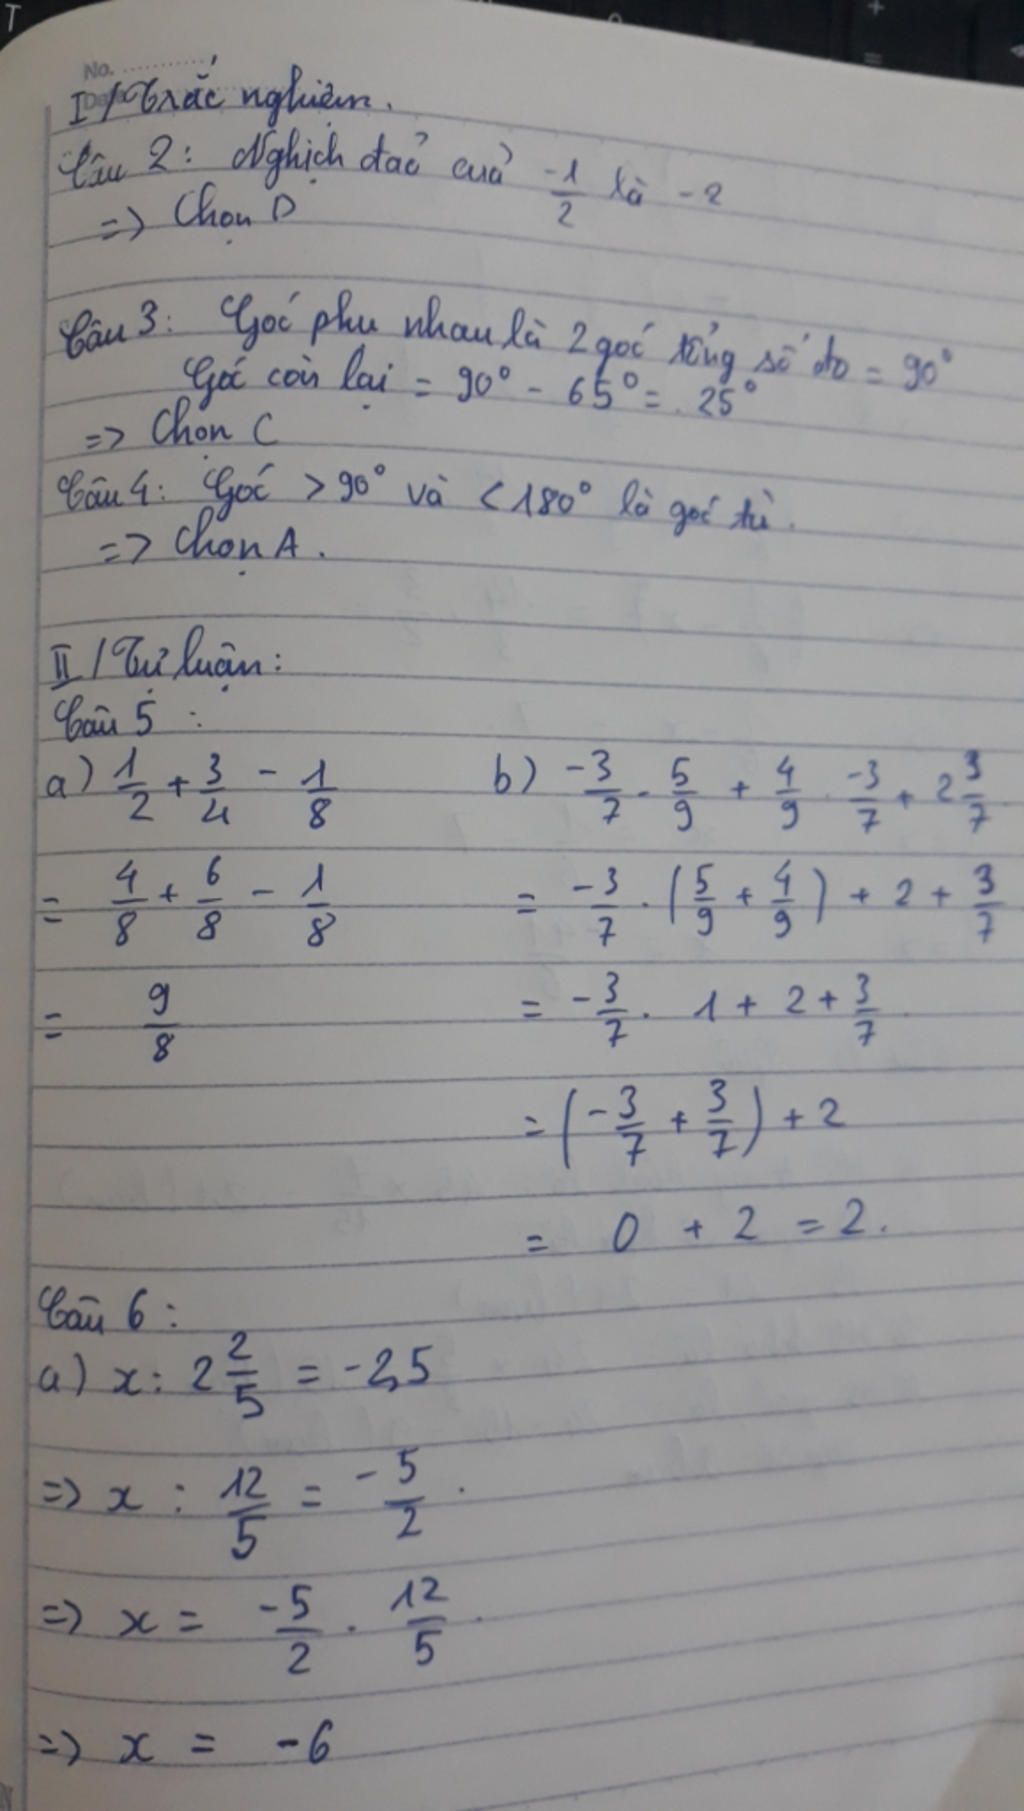 No.
I/ Trắc nghiệm.
Câu 2: Nghịch đảo của -1/2 là -2
=> Chọn D
Câu 3: Góc phụ nhau là 2 góc tổng số đo = 90°
Góc còn lại = 90° - 65° = 25°
=> Chọn C
Câu 4: Góc > 90° và < 180° là góc tù.
=> Chọn A.
II/ Tự luận:
Câu 5:
a) 1/2 + 3/4 - 1/8
= 4/8 + 6/8 - 1/8
= 9/8
b) -3/7 . 5/9 + 4/9 . -3/7 + 2 3/7
= -3/7 . (5/9 + 4/9) + 2 + 3/7
= -3/7 . 1 + 2 + 3/7
= (-3/7 + 3/7) + 2
= 0 + 2 = 2.
Câu 6:
a) x : 2 2/5 = -2,5
=> x : 12/5 = -5/2.
=> x = -5/2 . 12/5.
=> x = -6